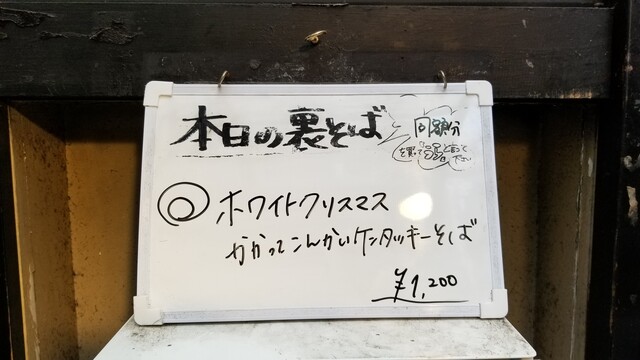 本日の裏そば
同額分
を買って
下さい
◎ホワイトクリスマス
かかってこんかいケンタッキーそば
¥1,200